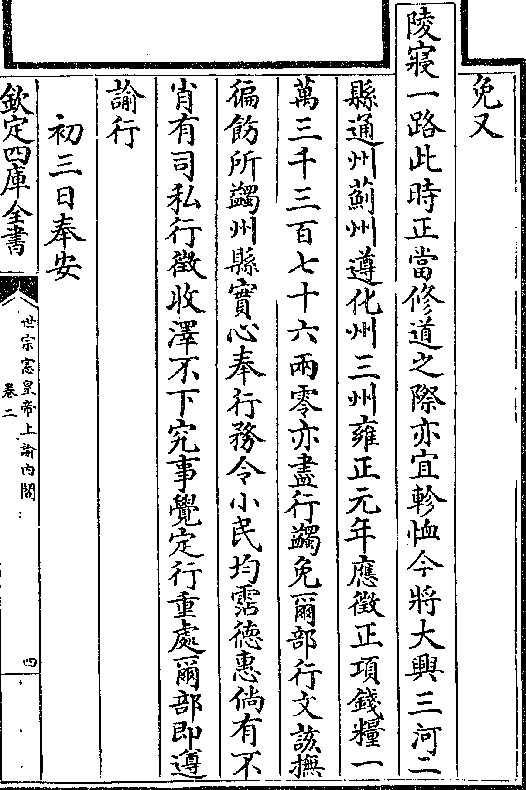 免又
陵寢一路此時正當修道之際亦宜軫恤今將大興三河二
縣通州薊州遵化州三州雍正元年應徵正項錢糧一
萬三千三百七十六兩零亦盡行蠲免爾部行文該撫
徧飭所蠲州縣實心奉行務令小民均霑德惠倘有不
肖有司私行徵收澤不下究事覺定行重處爾部即遵
諭行
初三日奉安
欽定四庫全書
世宗憲皇帝上諭內閣
卷二
四